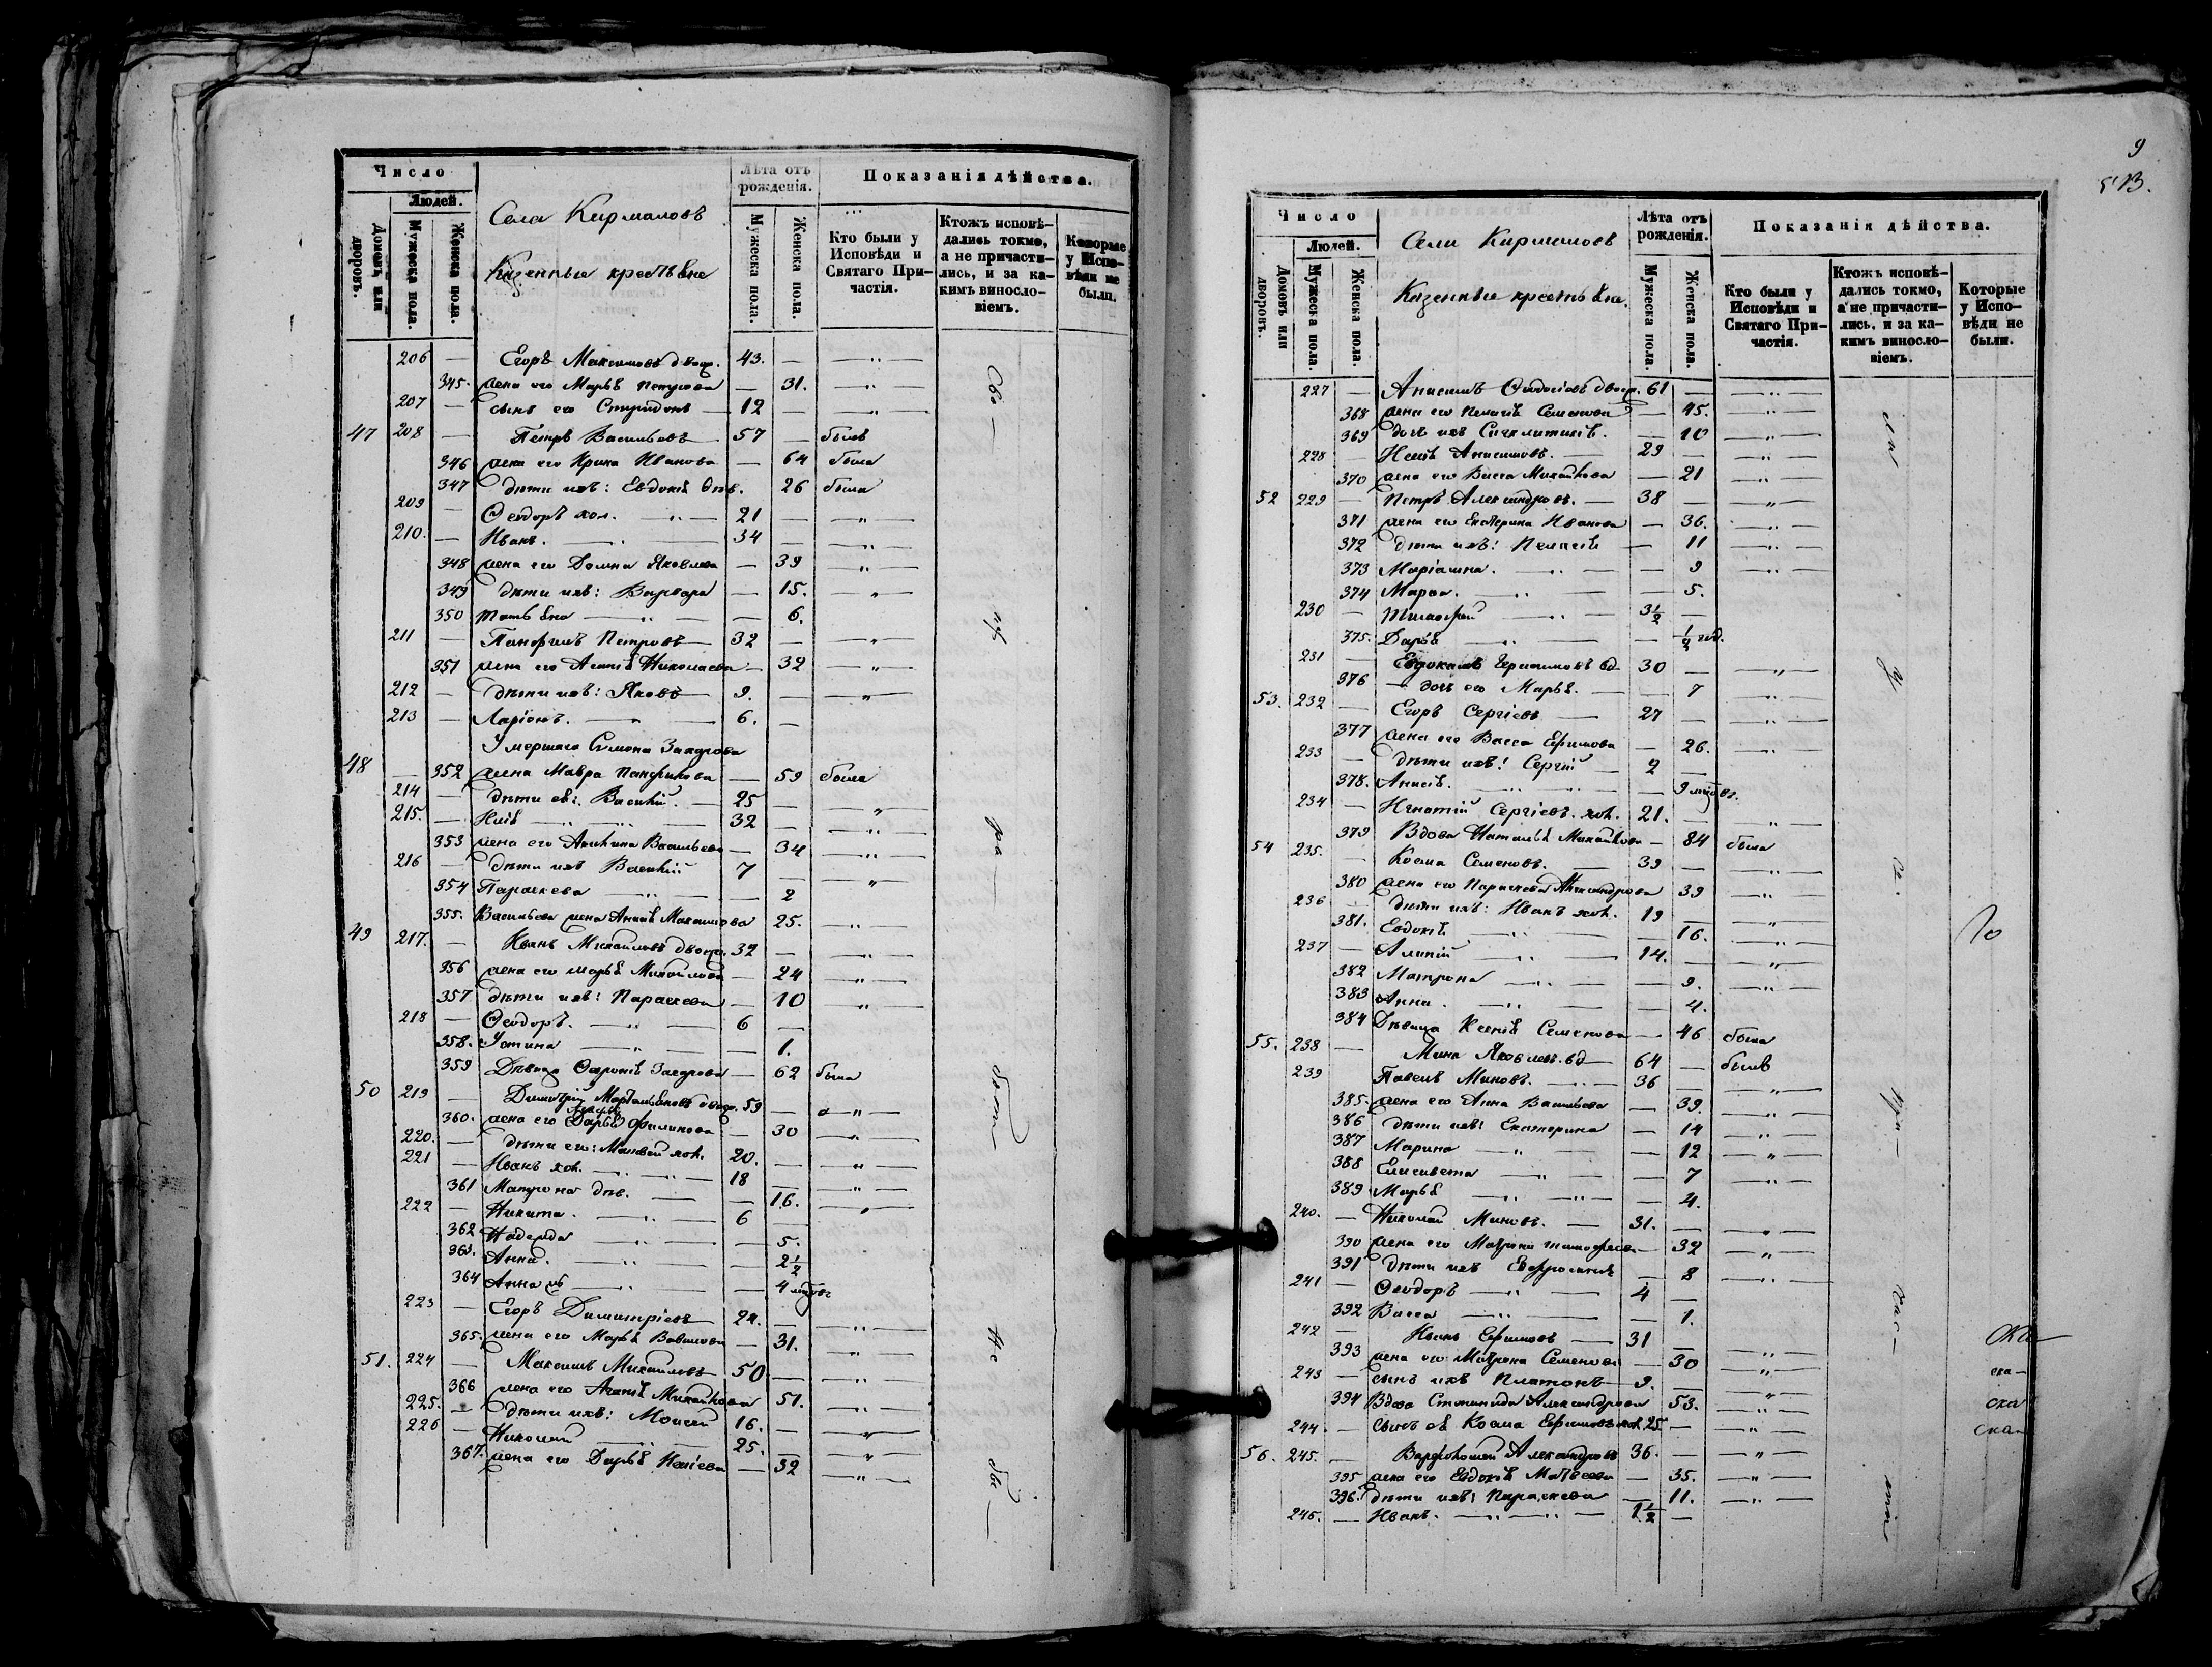 Число
Людей.
Домовъ или дворовъ.
Мужеска пола.
Женска пола.
Села
Казенные крестьяне
Лѣта отъ рожденія.
Мужеска пола.
Женска пола.
Показанія дѣйства.
Кто были у Исповѣди и Святаго Причастія.
Ктожъ исповѣдались токмо, а не причастились, и за какимъ винословіемъ.
Которые у Исповѣди не были.
206 — Егоръ Максимовъ 43. — —„—
345. жена его Марья — 31. —„—
207 — сынъ его — 12 — —„—
47 208 — Петръ Васильевъ 57 — былъ
346 жена его Ирина Иванова — 64 была
347 дѣти ихъ: Евдокія дѣв. 26 была
209 — Ѳеодоръ хол. —„— 21 — —„—
210. — Иванъ. —„— 34 — —„—
348 жена его Домна Яковлева — 39 —„—
349 дѣти ихъ: Варвара — 15. —„—
350 Татьяна —„— — 6.
211 — Панфилъ Петровъ 32 — —„—
351 жена его Николаева — 32 —„—
212 — дѣти ихъ: Яковъ 9. — —„—
213 — Ларіонъ. —„— 6. —
Умершаго Симона Захарова
48 — 352 жена Мавра Панфилова — 59 была
214 — дѣти ея: Василій. — 25 — —„—
215. — Илія —„— —„— 32 — —„—
353 жена его Акилина Васильева — 34 —„—
216 — дѣти ихъ Василій 7 — —„—
354 Параскева —„— — 2
355. Васильева жена Максимова 25. —„—
49 217. — Иванъ Михайловъ 32 — —„—
356 жена его Марья Михайлова — 24 —„—
357 дѣти ихъ: Параскева — 10 —„—
218 — Ѳеодоръ. —„— 6 —
358. Устина —„— — 1.
359 Дѣвица Захарова — 62 была
50 219 — Димитрій 59 — —„—
360. жена его Дарья Филипова — 30 —„—
220. — дѣти его: хол. 20. — —„—
221 — Иванъ хол. —„— 18 — —„—
361 Матрона дѣв. — 16. —„—
222 — Никита. —„— 6 —
362 Надежда —„— — 5.
363. Анна. —„— — 2½
364 Анна —„— — 4
223 — Егоръ Димитріевъ 24. — —„—
365. жена его Марья — 31. —„—
51. 224 — Максимъ Михайловъ 50 — —„—
366 жена его Михайлова 51. —„—
225. — дѣти ихъ: Моисей 16. — —„—
226 — Николай —„— 25. — —„—
367. жена его Дарья — 32 —„—
9
513.
Число
Людей.
Домовъ или дворовъ.
Мужеска пола.
Женска пола.
Села
Казенные крестьяне.
Лѣта отъ рожденія.
Мужеска пола.
Женска пола.
Показанія дѣйства.
Кто были у Исповѣди и Святаго Причастія.
Ктожъ исповѣдались токмо, а не причастились. и за какимъ винословіемъ.
Которые у Исповѣди не были.
227 — Анисимъ Ѳеодосіевъ 61 — —„—
368 жена его Пелагія Семенова — 45. —„—
369 дочь ихъ — 10 —„—
228 — Илія Анисимовъ. — 29 — —„—
370 жена его Васса Михайлова — 21 —„—
52 229 — Петръ Александровъ. — 38 — —„—
371 жена его Екатерина Иванова — 36. —„—
372 дѣти ихъ: Пелагія — 11 —„—
373 Маріамна. —„— — 9 —„—
374 —„— — 5.
230 — Тимофей —„— 3½ —
375. Дарья —„— — ½ год.
231 — Евдокимъ вд 30 — —„—
376 — дочь его Марья. — — 7 —„—
53. 232 — Егоръ Сергіевъ 27 — —„—
377 жена его Васса Ефимова — 26. —„—
233 — дѣти ихъ: Сергій — 2 —
378. —„— —„— — 9
234 — Игнатій Сергіевъ. хол. 21. — —„—
379 Вдова Наталья Михайлова — 84 была
54 235. — Косма Семеновъ. — 39 — —„—
380 жена его Параскева Александрова 39 —„—
236 — дѣти ихъ: Иванъ хол. 19 — —„—
381. Евдокія. —„— — 16. —„—
237 — —„— 14. — —„—
382 Матрона —„— — 9. —„—
383 Анна. —„— — 4.
384 Дѣвица Ксенія Семенова — 46 была
55. 238 — Мина Яковлевъ. вд 64 — былъ
239 Павелъ Миновъ. —„— 36 — —„—
385. жена его Анна Васильева — 39. —„—
386 дѣти ихъ: Екатерина — 14 —„—
387 Марина —„— — 12 —„—
388 Елисавета —„— — 7 —„—
389 Марья —„— —„— — 4.
240. — Николай Миновъ. — 31. — —„—
390 жена его Матрона Тимофеева — 32 —„—
391 дѣти ихъ Евфросинія — 8 —„—
241 — Ѳеодоръ —„— 4 —
392 Васса —„— — 1.
242 — Иванъ Ефимовъ — 31 — —„—
393 жена его Матрона Семенова — 30 —„—
243 — сынъ ихъ Платонъ 9. — —„—
394 Вдова Степанида Александрова 53. —„—
244. — сынъ ея Косма Ефимовъ хол. 25 — —„—
56. 245. — Варфоломей Александровъ 36. — —„—
395 жена его Евдокія Матвеева — 35. —„—
396. дѣти ихъ: Параскева — 11. —„—
246. — Иванъ. —„— —„— 1½ —